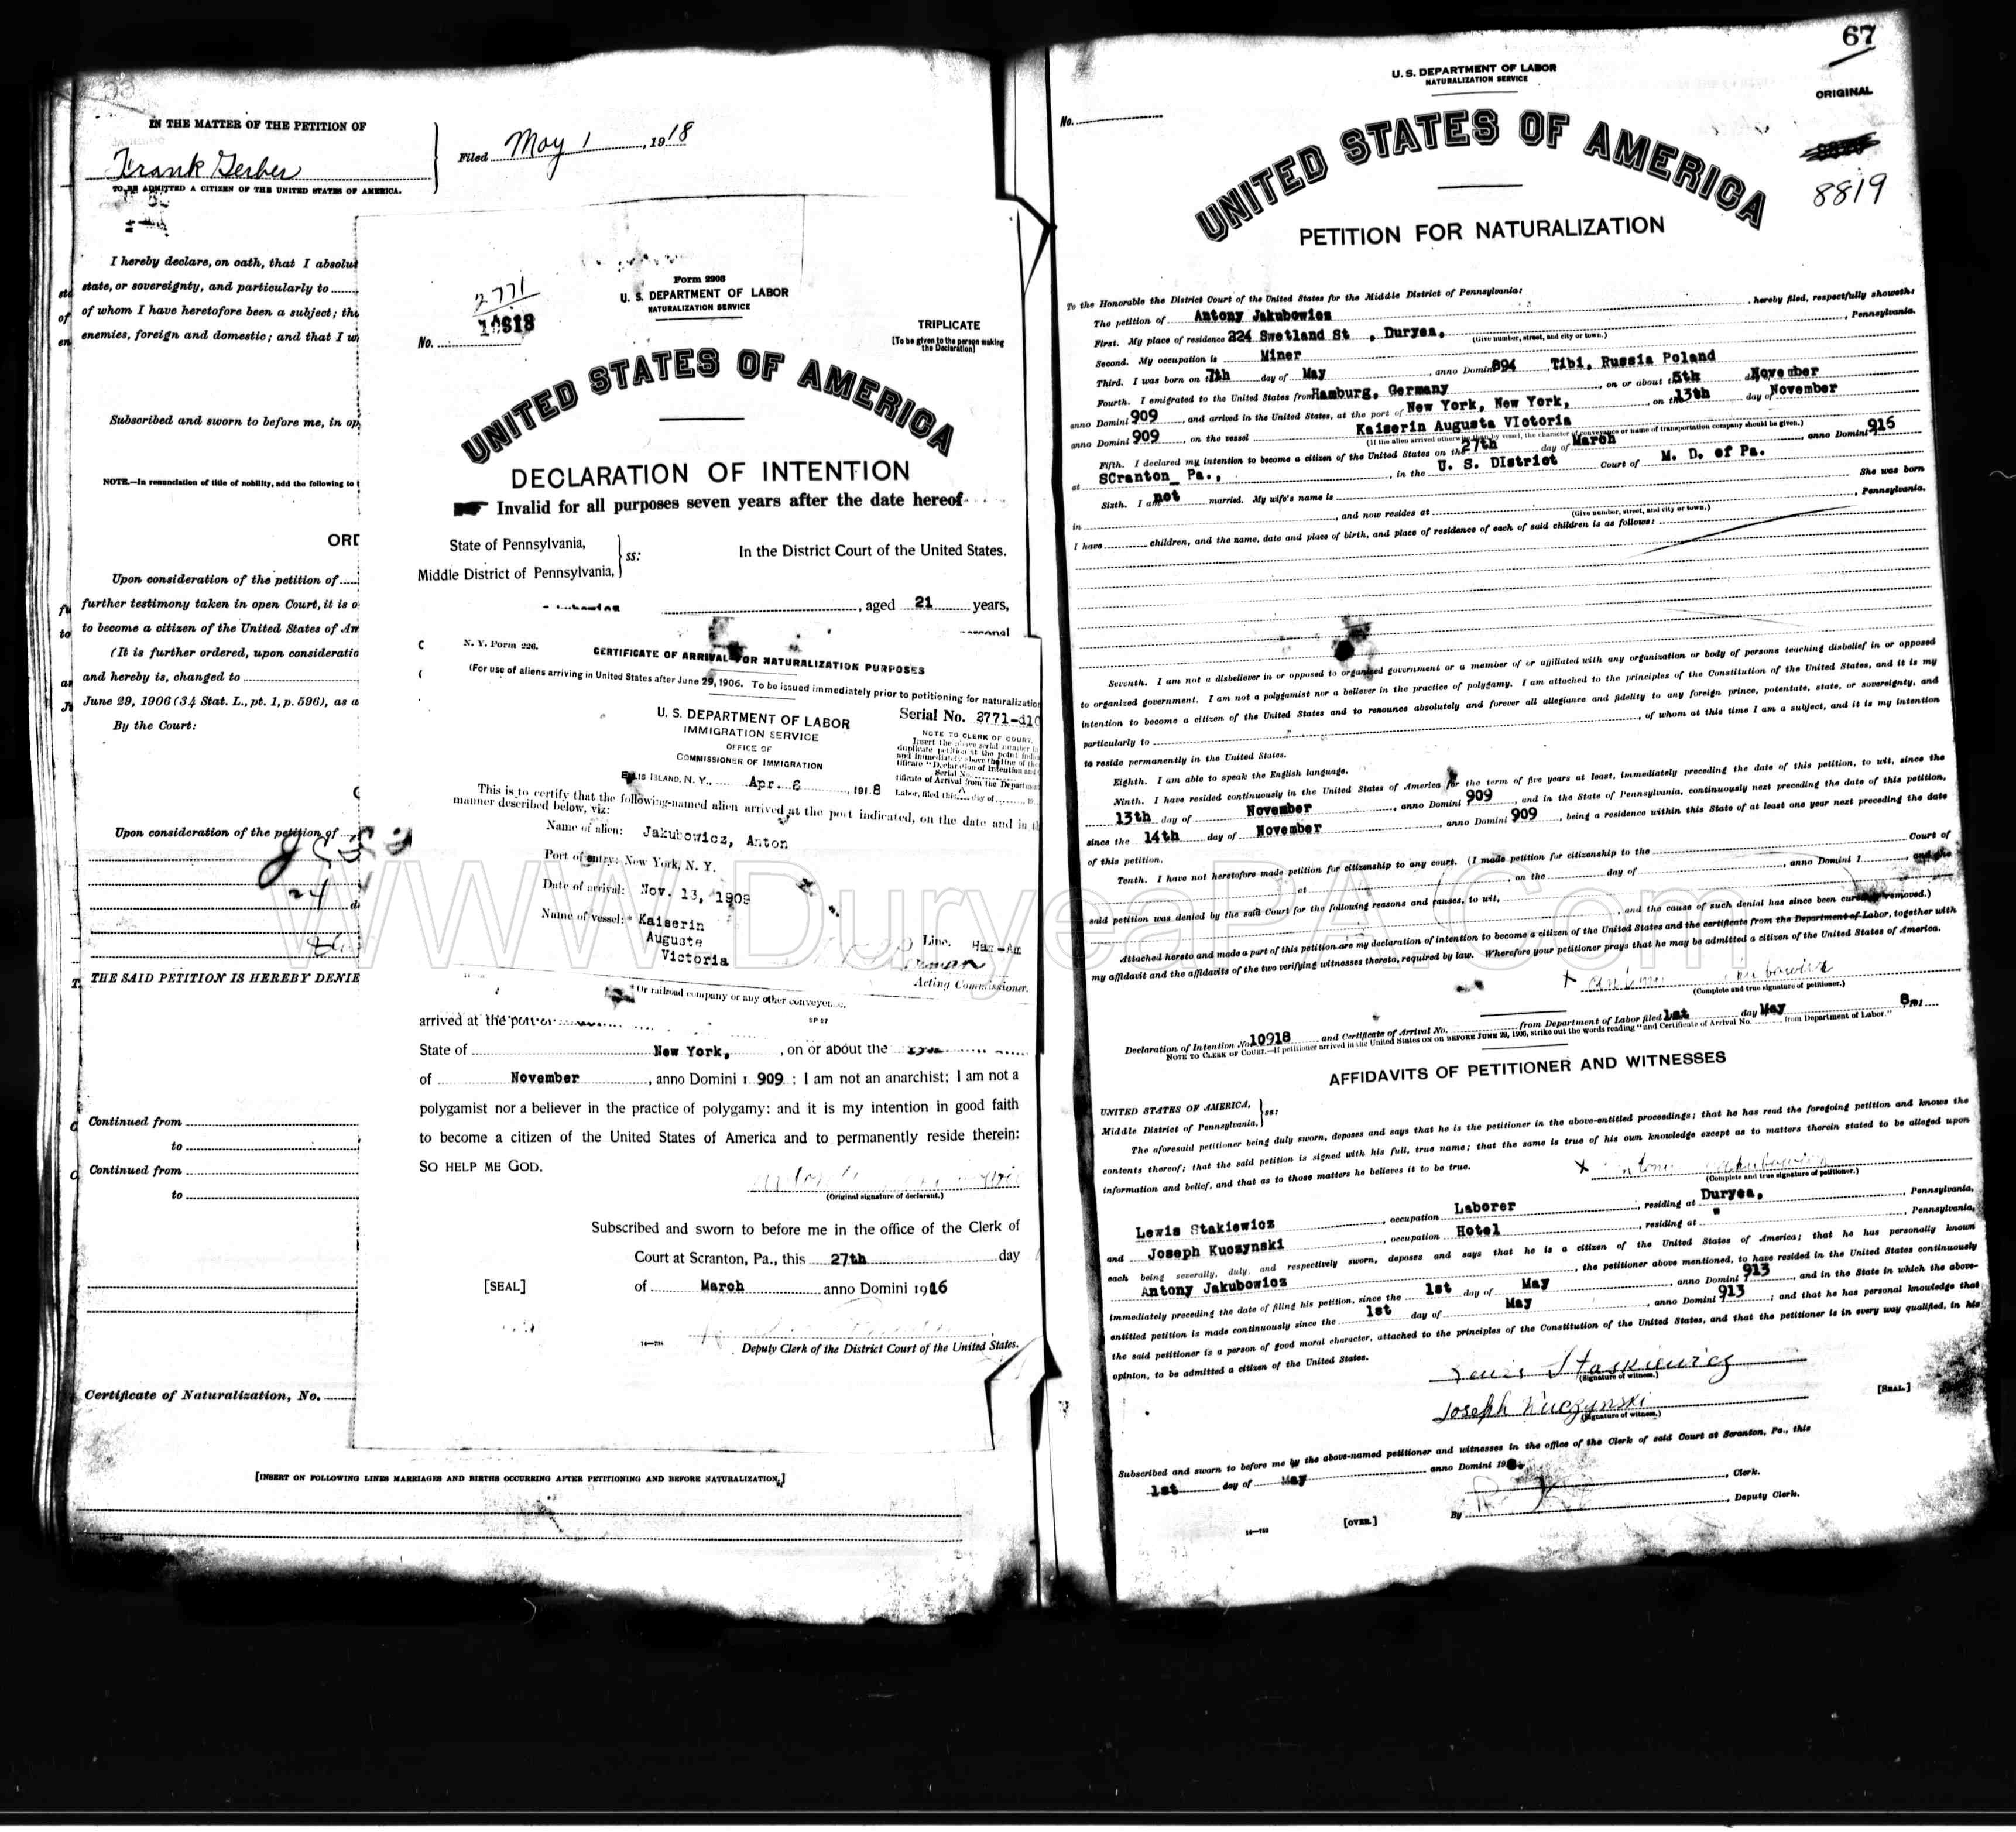 IN THE MATTER OF THE PETITION OF
Frank Gerber
TO BE ADMITTED A CITIZEN OF THE UNITED STATES OF AMERICA.
Filed May 1, 1918
I hereby declare, on oath, that I absolut
state, or sovereignty, and particularly to
of whom I have heretofore been a subject; tha
enemies, foreign and domestic; and that I w
Subscribed and sworn to before me, in op
NOTE.—In renunciation of title of nobility, add the following to
ORD
Upon consideration of the petition of
further testimony taken in open Court, it is o
to become a citizen of the United States of Am
(It is further ordered, upon consideratio
and hereby is, changed to
June 29, 1906 (34 Stat. L., pt. 1, p. 596), as a
By the Court:
Upon consideration of the petition of
24
THE SAID PETITION IS HEREBY DENIE
Continued from
to
Continued from
to
Certificate of Naturalization, No.
[INSERT ON FOLLOWING LINES MARRIAGES AND BIRTHS OCCURRING AFTER PETITIONING AND BEFORE NATURALIZATION.]
2771
Form 2203
U. S. DEPARTMENT OF LABOR
NATURALIZATION SERVICE
No. 10918
TRIPLICATE
[To be given to the person making the Declaration]
UNITED STATES OF AMERICA
DECLARATION OF INTENTION
Invalid for all purposes seven years after the date hereof
State of Pennsylvania,
Middle District of Pennsylvania, ss:
In the District Court of the United States.
, aged 21 years,
N. Y. Form 226.
CERTIFICATE OF ARRIVAL FOR NATURALIZATION PURPOSES
(For use of aliens arriving in United States after June 29, 1906. To be issued immediately prior to petitioning for naturalization
U. S. DEPARTMENT OF LABOR
IMMIGRATION SERVICE
OFFICE OF
COMMISSIONER OF IMMIGRATION
Serial No. 2771-
NOTE TO CLERK OF COURT.
ELLIS ISLAND, N. Y., Apr. 1918
This is to certify that the following-named alien arrived at the port indicated, on the date and in th
manner described below, viz:
Name of alien: Jakubowicz, Anton
Port of entry: New York, N. Y.
Date of arrival: Nov. 13, 1909
Name of vessel:* Kaiserin
Auguste
Victoria
Line. Ham-Am
Acting Commissioner.
*Or railroad company or any other conveyance.
arrived at the port of
State of New York, , on or about the
of November , anno Domini 1 909 ; I am not an anarchist; I am not a
polygamist nor a believer in the practice of polygamy; and it is my intention in good faith
to become a citizen of the United States of America and to permanently reside therein:
SO HELP ME GOD.
(Original signature of declarant.)
Subscribed and sworn to before me in the office of the Clerk of
Court at Scranton, Pa., this 27th day
[SEAL] of March anno Domini 1916
Deputy Clerk of the District Court of the United States.
67
U. S. DEPARTMENT OF LABOR
NATURALIZATION SERVICE
ORIGINAL
No.
8819
UNITED STATES OF AMERICA
PETITION FOR NATURALIZATION
To the Honorable the District Court of the United States for the Middle District of Pennsylvania:
The petition of Antony Jakubowicz , hereby filed, respectfully showeth:
First. My place of residence 224 Swetland St , Duryea, , Pennsylvania.
(Give number, street, and city or town.)
Second. My occupation is Miner
Third. I was born on 7th day of May , anno Domini 894 Tibi, Russia Poland
Fourth. I emigrated to the United States from Hamburg, Germany , on or about the 5th day of November
anno Domini 909 , and arrived in the United States, at the port of New York, New York, , on the 13th day of November
anno Domini 909 , on the vessel Kaiserin Augusta VIctoria
(If the alien arrived otherwise than by vessel, the character of conveyance or name of transportation company should be given.)
Fifth. I declared my intention to become a citizen of the United States on the 27th day of March , anno Domini 916
at SCranton_ Pa., , in the U. S. DIstrict Court of M. D. of Pa.
Sixth. I am not married. My wife's name is She was born
in , and now resides at , Pennsylvania.
(Give number, street, and city or town.)
I have children, and the name, date and place of birth, and place of residence of each of said children is as follows:
Seventh. I am not a disbeliever in or opposed to organized government or a member of or affiliated with any organization or body of persons teaching disbelief in or opposed
to organized government. I am not a polygamist nor a believer in the practice of polygamy. I am attached to the principles of the Constitution of the United States, and it is my
intention to become a citizen of the United States and to renounce absolutely and forever all allegiance and fidelity to any foreign prince, potentate, state, or sovereignty, and
particularly to , of whom at this time I am a subject, and it is my intention
to reside permanently in the United States.
Eighth. I am able to speak the English language.
Ninth. I have resided continuously in the United States of America for the term of five years at least, immediately preceding the date of this petition, to wit, since the
13th day of November , anno Domini 909 , and in the State of Pennsylvania, continuously next preceding the date of this petition,
since the 14th day of November , anno Domini 909 , being a residence within this State of at least one year next preceding the date
of this petition.
Tenth. I have not heretofore made petition for citizenship to any court. (I made petition for citizenship to the Court of
at , on the day of , anno Domini 1 , and the
said petition was denied by the said Court for the following reasons and causes, to wit,
, and the cause of such denial has since been cured or removed.)
Attached hereto and made a part of this petition are my declaration of intention to become a citizen of the United States and the certificate from the Department of Labor, together with
my affidavit and the affidavits of the two verifying witnesses thereto, required by law. Wherefore your petitioner prays that he may be admitted a citizen of the United States of America.
(Complete and true signature of petitioner.)
Declaration of Intention No. 10918 and Certificate of Arrival No. from Department of Labor filed 1st day May 8
NOTE TO CLERK OF COURT.—If petitioner arrived in the United States ON OR BEFORE JUNE 29, 1906, strike out the words reading "and Certificate of Arrival No. from Department of Labor."
AFFIDAVITS OF PETITIONER AND WITNESSES
UNITED STATES OF AMERICA,
Middle District of Pennsylvania, ss:
The aforesaid petitioner being duly sworn, deposes and says that he is the petitioner in the above-entitled proceedings; that he has read the foregoing petition and knows the
contents thereof; that the said petition is signed with his full, true name; that the same is true of his own knowledge except as to matters therein stated to be alleged upon
information and belief, and that as to those matters he believes it to be true.
(Complete and true signature of petitioner.)
Lewis Stakiewicz , occupation Laborer , residing at Duryea, , Pennsylvania,
and Joseph Kuczynski , occupation Hotel , residing at " , Pennsylvania,
each being severally, duly, and respectively sworn, deposes and says that he is a citizen of the United States of America; that he has personally known
Antony Jakubowicz , the petitioner above mentioned, to have resided in the United States continuously
immediately preceding the date of filing his petition, since the 1st day of May , anno Domini 913 , and in the State in which the above-
entitled petition is made continuously since the 1st day of May , anno Domini 913 ; and that he has personal knowledge that
the said petitioner is a person of good moral character, attached to the principles of the Constitution of the United States, and that the petitioner is in every way qualified, in his
opinion, to be admitted a citizen of the United States.
Lewis Staskiewicz
(Signature of witness.)
Joseph Kuczynski
(Signature of witness.)
[SEAL.]
Subscribed and sworn to before me by the above-named petitioner and witnesses in the office of the Clerk of said Court at Scranton, Pa., this
1st day of May anno Domini 191
, Clerk.
By , Deputy Clerk.
[OVER.]
WWW.DuryeaPA.Com